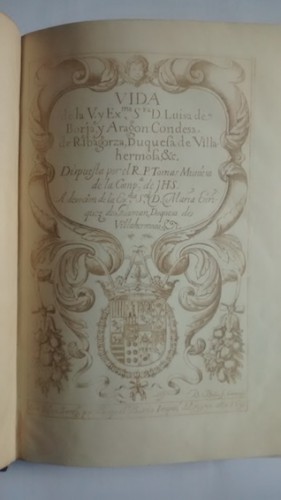 VIDA
de la V. y Exma. Sra. D. Luisa de
Borja, y Aragon Condesa
de Ribagorza, Duquesa de Villa
hermosa, &c.
Dispuesta por el R. P. Tomas Muniesa
de la Compa. de JHS.
A devocion de la Exma. Sa. D. Maria Enri
quez de Guzman, Duquesa de
Villahermosa, &c.